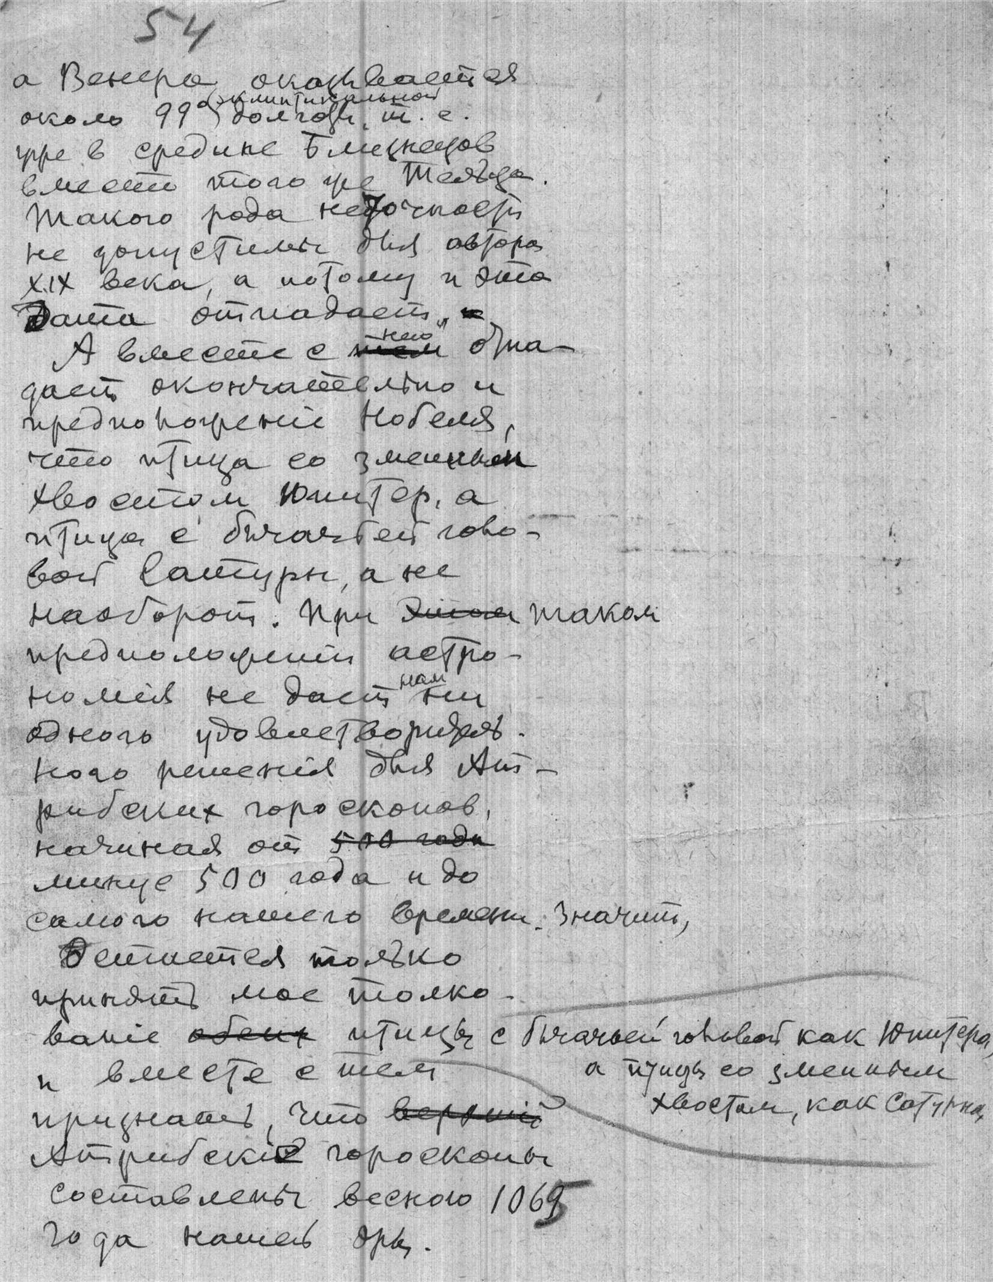 54
а Венера оказывается
около 99° эклиптикальной долготы, т. е.
уже в средине Близнецов
вместо того же Тельца.
Такого рода неточности
не допустимы для автора
XIX века, а потому и эта
дата отпадает.
А вместе с нею отпа-
дает окончательно и
предположеніе Нобеля,
что птица со змеиным
хвостом Юпитер, а
птица с бычачьей голо-
вой Сатурн, а не
наоборот. При этом таком
предположении астро-
номия не дает нам ни
одного удовлетворитель-
ного решения для Ат-
рибских гороскопов,
начиная от 500 года
минус 500 года и до
самого нашего времени. Значит,
остается только
принять мое толко-
ваніе обеих птицы с бычачьей головой как Юпитера,
а птицы со змеиным
хвостом, как Сатурна,
и вместе с тем
признать, что верхний
Атрибские гороскопы
составлены весною 1065
года нашей эры.